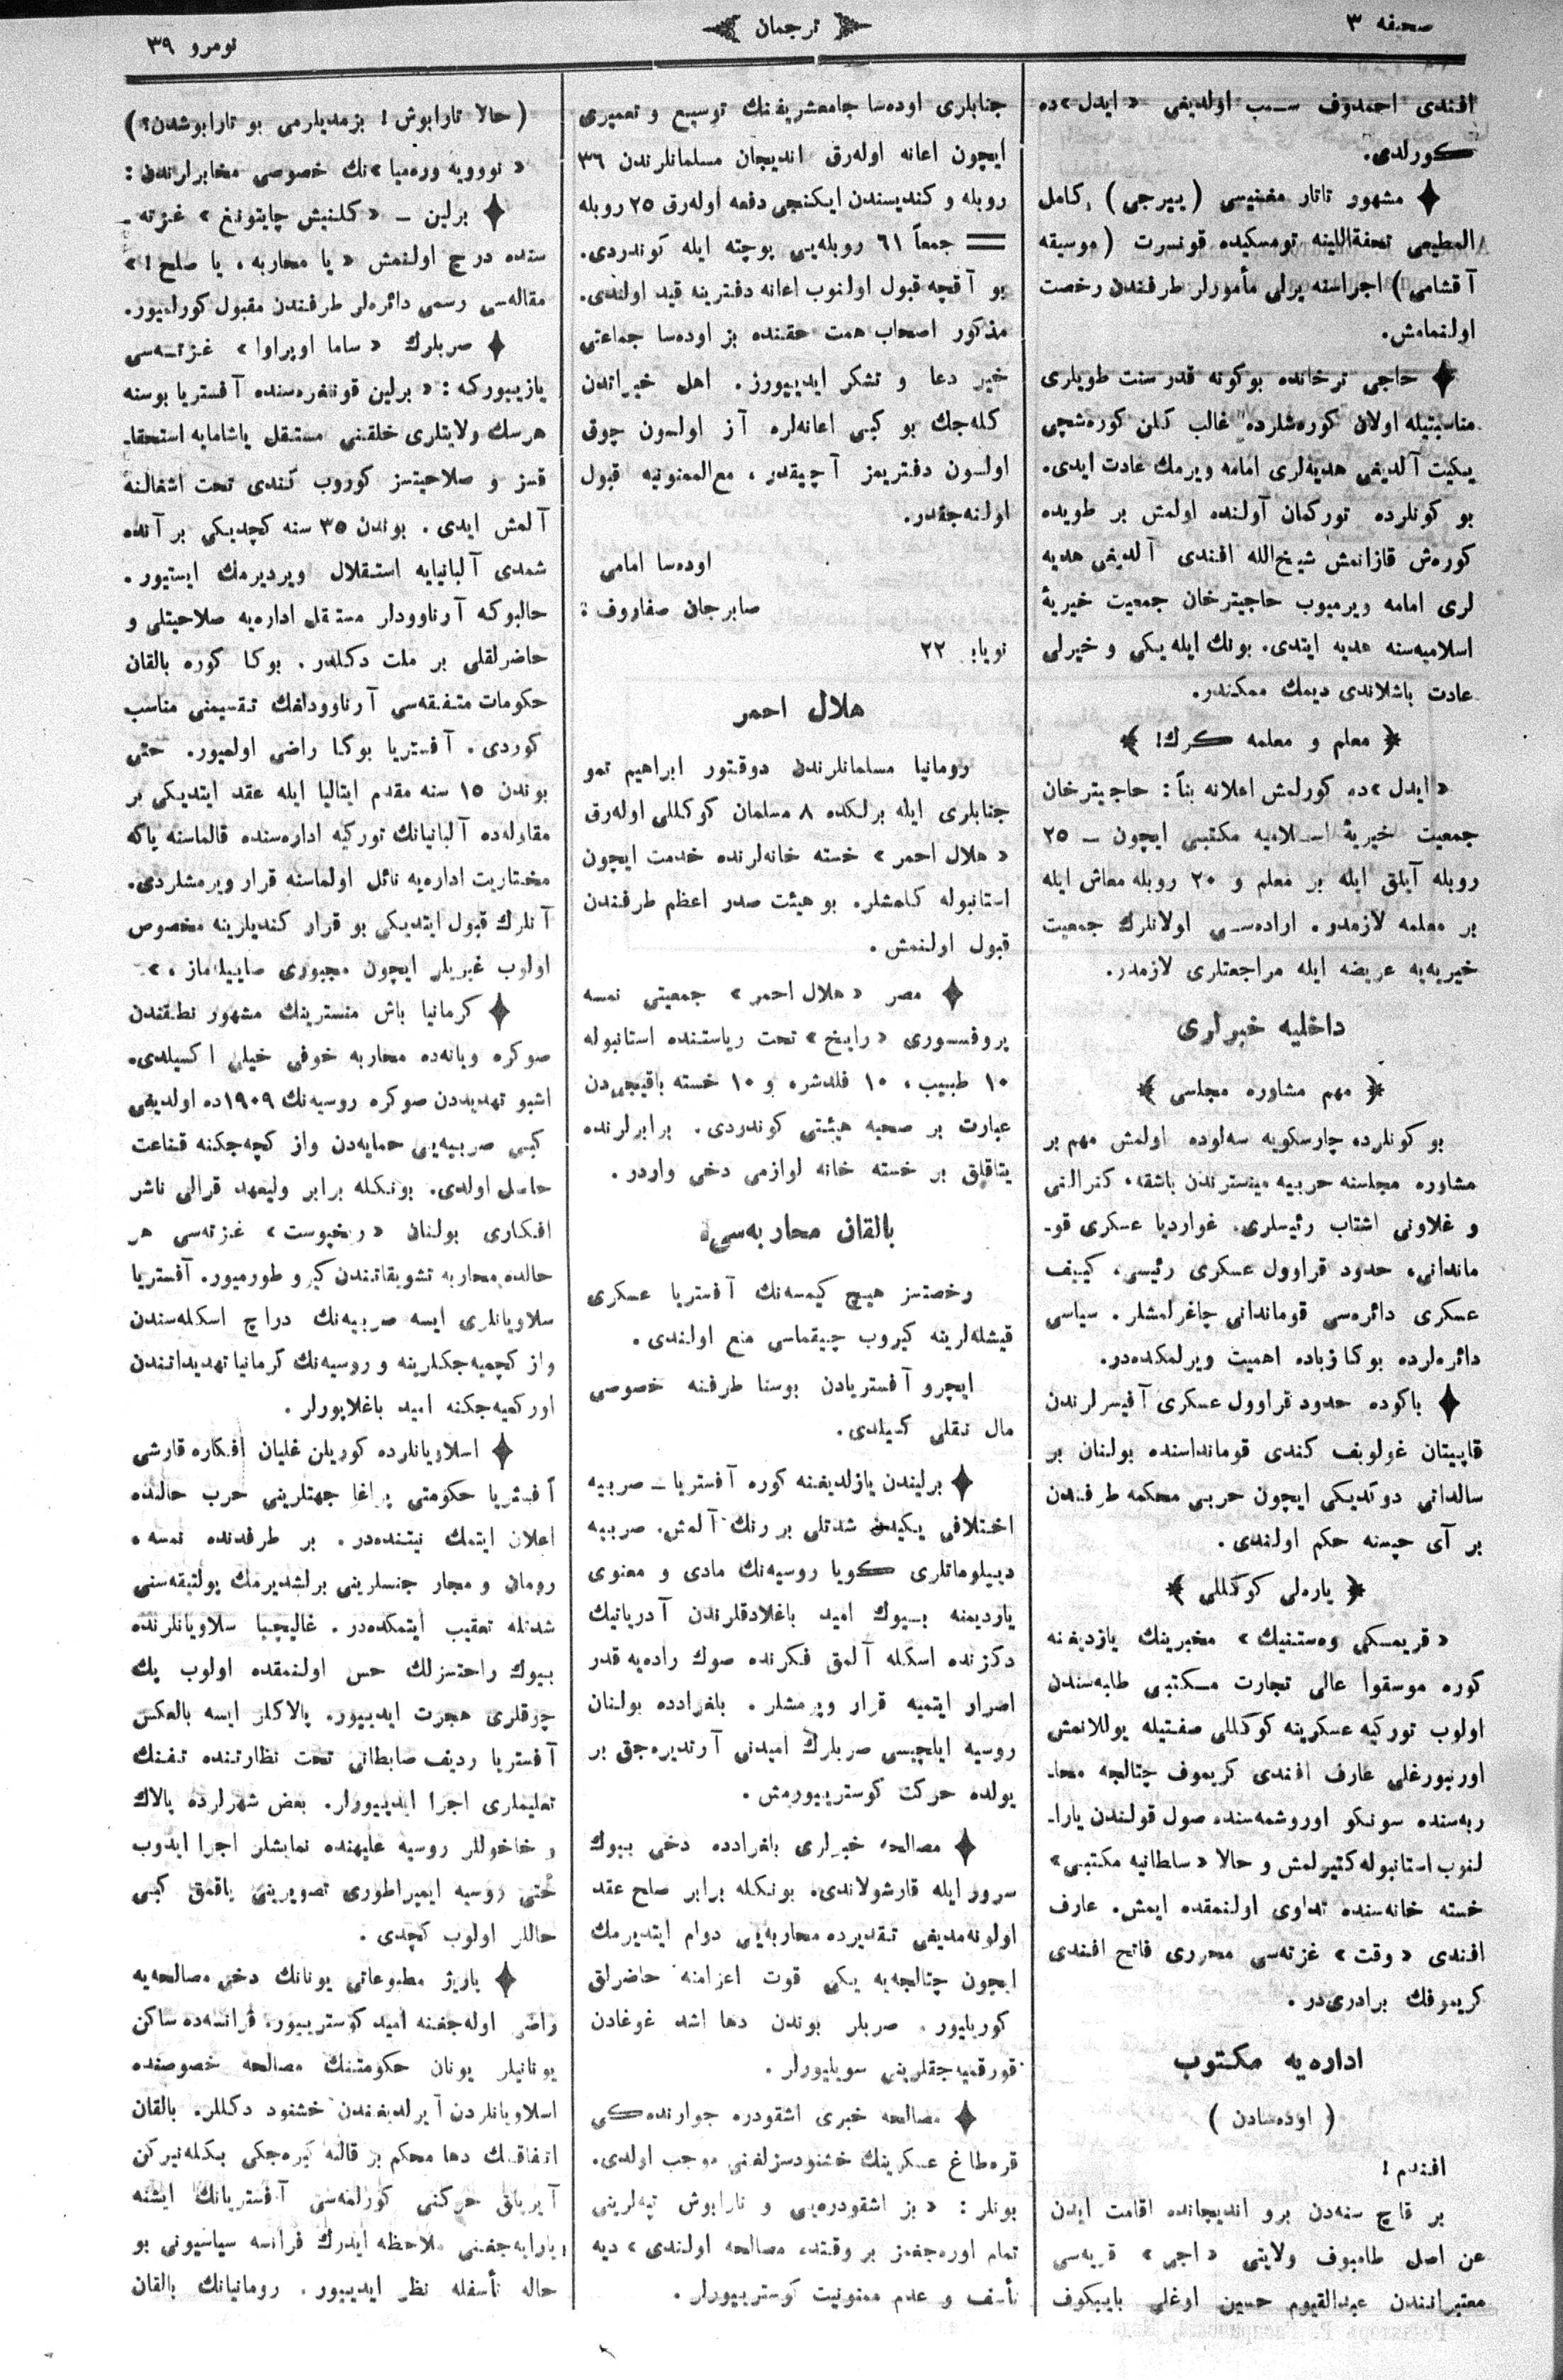 صحیفه ۳
ترجمان
نومرو ۳۹
افندی احمدوف سبب اولدیغی «ایدل»ده
كورلدی.
مشهور تاتار مغنیسی (بیرجی) كامل
المطیعی تحفةاللینه تومسكیده قونسرت (موسیقه
آقشامی) اجراسنه یرلی مأمورلر طرفندن رخصت
اولنمامش.
حاجی ترخانده بوكونه قدر سنت طویلری
مناسبتیله اولان كوره‌شلرده غالب كلن كوره‌شچی
یكیت آلدیغی هدیه‌لری امامه ویرمك عادت ایدی.
بو كونلرده توركمان آولنده اولمش بر طویده
كوره‌ش قازانمش شیخ‌الله افندی آلدیغی هدیه
لری امامه ویرمیوب حاجیترخان جمعیت خیریهٔ
اسلامیه‌سنه هدیه ایتدی. بونك ایله یكی و خیرلی
عادت باشلاندی دیمك ممكندر.
﴿ معلم و معلمه كرك! ﴾
«ایدل»ده كورلمش اعلانه بنأ: حاجیترخان
جمعیت خیریهٔ اسلامیه مكتبی ایچون ــ ۲۵
روبله آیلق ایله بر معلم و ۲۰ روبله معاش ایله
بر معلمه لازمدر. اراده‌سی اولانلرك جمعیت
خیریه‌یه عریضه ایله مراجعتلری لازمدر.
داخلیه خبرلری
﴿ مهم مشاوره مجلسی ﴾
بو كونلرده چارسكویه سه‌لوده اولمش مهم بر
مشاوره مجلسنه حربیه مینسترندن باشقه، كنرالنی
و غلاونی اشتاب رئیسلری، غواردیا عسكری قو-
ماندانی، حدود قراوول عسكری رئیسی، كییف
عسكری دائره‌سی قوماندانی چاغرلمشلر. سیاسی
دائره‌لرده بوكا زیاده اهمیت ویرلمكده‌در.
باكوده حدود قراوول عسكری آفیسرلرندن
قاپیتان غولوبف كندی قومانداسنده بولنان بر
سالدانی دوكدیكی ایچون حربی محكمه طرفندن
بر آی حبسنه حكم اولندی.
﴿ یاره‌لی كوكللی ﴾
«قریمسكی وه‌ستنیك» مخبرینك یازدیغنه
كوره موسقوا عالی تجارت مكتبی طلبه‌سندن
اولوب توركیه عسكرینه كوكللی صفتیله یوللانمش
اورنبورغلی عارف افندی كریموف چتالجه محا-
ربه‌سنده سونكو اوروشمه‌سنده صول قولندن یارا-
لنوب استانبوله كتیرلمش و حالا «سلطانیه مكتبی»
خسته خانه‌سنده تداوی اولنمقده ایمش. عارف
افندی «وقت» غزته‌سی محرری فاتح افندی
كریموفك برادری‌در.
اداره‌یه مكتوب
(اوده‌سادن)
افندم!
بر قاچ سنه‌دن برو اندیجانده اقامت ایدن
عن اصل طامبوف ولایتی «اجی» قریه‌سی
معتبرانندن عبدالقیوم حسین اوغلی بایبكوف
جنابلری اوده‌سا جامعشریفنك توسیع و تعمیری
ایچون اعانه اوله‌رق اندیجان مسلمانلرندن ۳۶
روبله و كندیسندن ایكنجی دفعه اوله‌رق ۲۵ روبله
جمعاً ۶۱ روبله‌یی پوچته ایله كوندردی.
بو آقچه قبول اولنوب اعانه دفترینه قید اولندی.
مذكور اصحاب همت حقنده بز اوده‌سا جماعتی
خیر دعا و تشكر ایدییورز. اهل خیراتدن
كله‌جك بو كبی اعانه‌لره آز اولسون چوق
اولسون دفتریمز آچیقدر، مع‌الممنونیه قبول
اولنه‌جقدر.
اوده‌سا امامی
صابرجان صفاروف
نویابر ۲۲
هلال احمر
رومانیا مسلمانلرندن دوقتور ابراهیم تمو
جنابلری ایله برلكده ۸ مسلمان كوكللی اوله‌رق
«هلال احمر» خسته خانه‌لرنده خدمت ایچون
استانبوله كلمشلر. بو هیئت صدر اعظم طرفندن
قبول اولنمش.
مصر «هلال احمر» جمعیتی نمسه
پروفسوری «رایخ» تحت ریاستنده استانبوله
۱۰ طبیب، ۱۰ فلدشر، و ۱۰ خسته باقیجی‌دن
عبارت بر صحیه هیئتی كوندردی. برابرلرنده
یتاقلق بر خسته خانه لوازمی دخی واردر.
بالقان محاربه‌سی
رخصتسز هیچ كیمسه‌نك آفستریا عسكری
قیشله‌لرینه كیروب چیقماسی منع اولندی.
ایچرو آفستریادن بوسنا طرفنه خصوصی
مال نقلی كسیلدی.
برلیندن یازلدیغنه كوره آفستریا ــ صربیه
اختلافی یكیدن شدتلی بر رنك آلمش. صربیه
دیپلوماتلری كویا روسیه‌نك مادی و معنوی
یاردیمنه بیوك امید باغلادقلرندن آدریاتیك
دكزنده اسكله آلمق فكرنده صوك راده‌یه قدر
اصرار ایتمیه قرار ویرمشلر. بلغرادده بولنان
روسیه ایلچیسی صربلرك امیدنی آرتدیره‌جق بر
یولده حركت كوسترییورمش.
مصالحه خبرلری بلغرادده دخی بیوك
سرور ایله قارشولاندی. بونكله برابر صلح عقد
اولونه‌مدیغی تقدیرده محاربه‌یی دوام ایتدیرمك
ایچون چتالجه‌یه یكی قوت اعزامنه حاضرلق
كورییلیور. صربلر بوندن دها اشد غوغادن
قورقمیه‌جقلرینی سویلیورلر.
مصالحه خبری اشقودره جوارنده‌كی
قره‌طاغ عسكرینك خشنودسزلغنی موجب اولدی.
بونلر: «بز اشقودره‌یی و تارابوش تپه‌لرینی
تمام اوره‌جغمز بر وقتده، مصالحه اولندی» دیه
تأسف و عدم ممنونیت كوسترییورلر.
(حالا تارابوش! بزمدیلرمی بو تارابوشدن؟)
«نوویه وره‌میا»نك خصوصی مخابرلرندن:
برلین ــ «كلنیش چایتونغ» غزته-
سنده درج اولنمش «یا محاربه، یا صلح!»
مقاله‌سی رسمی دائره‌لر طرفندن مقبول كورلمیور.
صربلرك «ساما اوپراوا» غزته‌سی
یازییوركه: «برلین قونغره‌سنده آفستریا بوسنه
هرسك ولایتلری خلقنی مستقل یاشامایه استحقا-
قسز و صلاحیتسز كوروب كندی تحت اشغالنه
آلمش ایدی. بوندن ۳۵ سنه كچدیكی بر آنده
شمدی آلبانیایه استقلال ویردیرمك ایستیور.
حالبوكه آرناوودلر مستقل اداره‌یه صلاحیتلی و
حاضرلقلی بر ملت دكلدر. بوكا كوره بالقان
حكومات متفقه‌سی آرناوودلغك تقسیمنی مناسب
كوردی. آفستریا بوكا راضی اولمیور. حتی
بوندن ۱۵ سنه مقدم ایتالیا ایله عقد ایتدیكی بر
مقاوله‌ده آلبانیانك توركیه اداره‌سنده قالماسنه یاكه
مختاریت اداره‌یه نائل اولماسنه قرار ویرمشلردی.
آنلرك قبول ایتدیكی بو قرار كندیلرینه مخصوص
اولوب غیریلر ایچون مجبوری صاییلاماز.»
كرمانیا باش منسترینك مشهور نطقندن
صوكره ویانه‌ده محاربه خوفی خیلی اكسیلدی.
اشبو تهدیددن صوكره روسیه‌نك ۱۹۰۹ده اولدیغی
كبی صربیه‌یی حمایه‌دن واز كچه‌جكنه قناعت
حاصل اولدی. بونكله برابر ولیعهد قرالی ناشر
افكاری بولنان «ریخپوست» غزته‌سی هر
حالده محاربه تشویقاتندن كیرو طورمیور. آفستریا
سلاویانلری ایسه صربیه‌نك دراچ اسكله‌سندن
واز كچمیه‌جكلرینه و روسیه‌نك كرمانیا تهدیداتندن
اوركمیه‌جكنه امید باغلایورلر.
اسلاویانلرده كوریلن غلیان افكاره قارشی
آفستریا حكومتی پراغا جهتلرینی حرب حالنده
اعلان ایتمك نیتنده‌در. بر طرفدنده نمسه،
رومان و مجار جنسلرینی برلشدیرمك پولتیقه‌سنی
شدتله تعقیب ایتمكده‌در. غالیچیا سلاویانلرنده
بیوك راحتسزلك حس اولنمقده اولوب پك
چوقلری هجرت ایدییور. پالاكلر ایسه بالعكس
آفستریا ردیف ضابطانی تحت نظارتنده تفنك
تعلیملری اجرا ایدییورلر. بعض شهرلرده پالاك
و خاخوللر روسیه علیهنده نمایشلر اجرا ایدوب
حتی روسیه ایمپراطوری تصویرینی یاقمق كبی
حاللر اولوب كچدی.
پاریژ مطبوعاتی یونانك دخی مصالحه‌یه
راضی اوله‌جغنه امید كوسترییور. فرانسه‌ده ساكن
یونانیلر یونان حكومتنك مصالحه خصوصنده
اسلاویانلردن آیرلدیغندن خشنود دكللر. بالقان
اتفاقنك دها محكم بر قالبه كیره‌جكی بكله‌نیركن
آیریلق حركتی كورلمه‌سی آفستریانك ایشنه
یارایه‌جغنی ملاحظه ایدرك فرانسه سیاسیونی بو
حاله تأسفله نظر ایدییور. رومانیانك بالقان